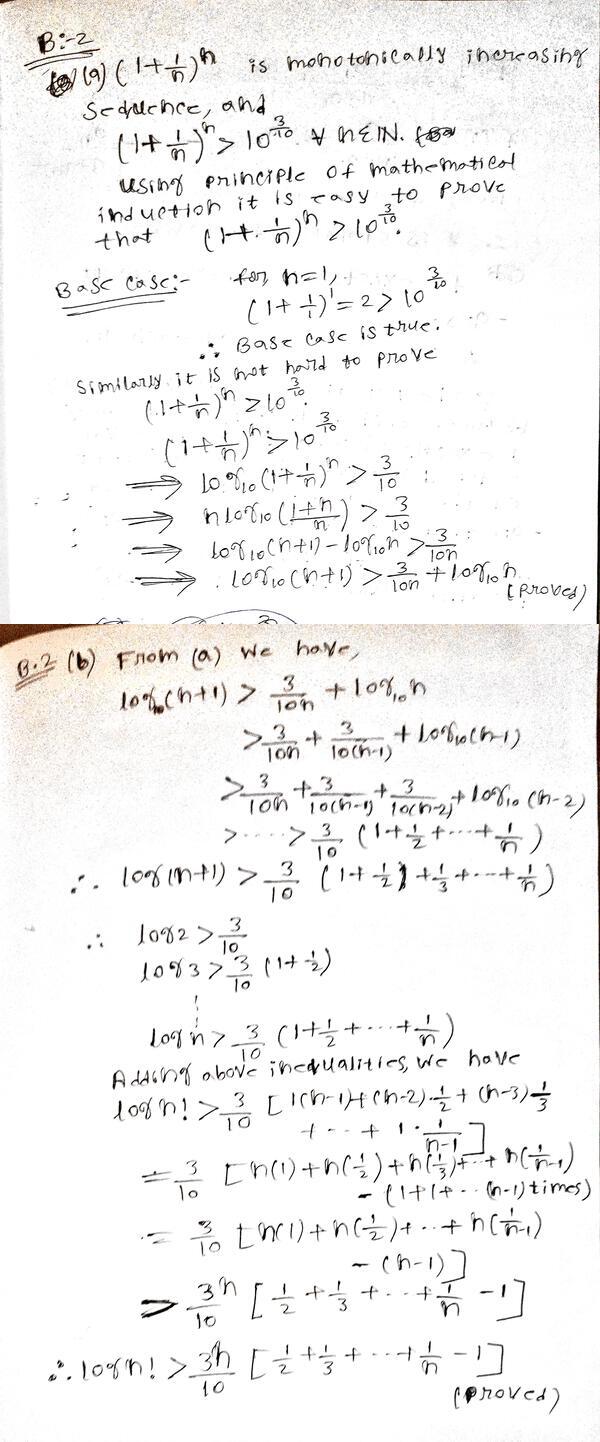 B:-2
(a) (1+1/n)^n is monotonically increasing
sequence, and
(1+1/n)^n > 10^(3/10) ∀ n∈IN.
using principle of mathematical
induction it is easy to prove
that (1+1/n)^n > 10^(3/10).
Base case:- for n=1,
(1+1/1)^1 = 2 > 10^(3/10).
∴ Base case is true.
Similarly it is not hard to prove
(1+1/n)^n > 10^(3/10).
(1+1/n)^n > 10^(3/10)
⟹ log₁₀(1+1/n)^n > 3/10
⟹ n log₁₀((1+n)/n) > 3/10
⟹ log₁₀(n+1) - log₁₀n > 3/10n
⟹ log₁₀(n+1) > 3/10n + log₁₀n
(proved)
B.2 (b) From (a) we have,
log₁₀(n+1) > 3/10n + log₁₀n
> 3/10n + 3/10(n-1) + log₁₀(n-1)
> 3/10n + 3/10(n-1) + 3/10(n-2) + log₁₀(n-2)
> ..... > 3/10 (1+1/2+...+1/n)
∴ log(n+1) > 3/10 (1+1/2)+1/3+...+1/n)
∴ log2 > 3/10
log3 > 3/10 (1+1/2)
logn > 3/10 (1+1/2+...+1/n)
Adding above inequalities, we have
log n! > 3/10 [1(n-1)+(n-2).1/2+(n-3)1/3
+...+1.1/(n-1)]
= 3/10 [n(1)+n(1/2)+n(1/3)+..+n(1/(n-1))
-(1+1+..(n-1)times)
= 3/10 [n(1)+n(1/2)+..+n(1/(n-1))
-(n-1)]
= 3n/10 [1/2+1/3+...+1/n-1]
∴ log n! > 3n/10 [1/2+1/3+...+1/n-1]
(proved)